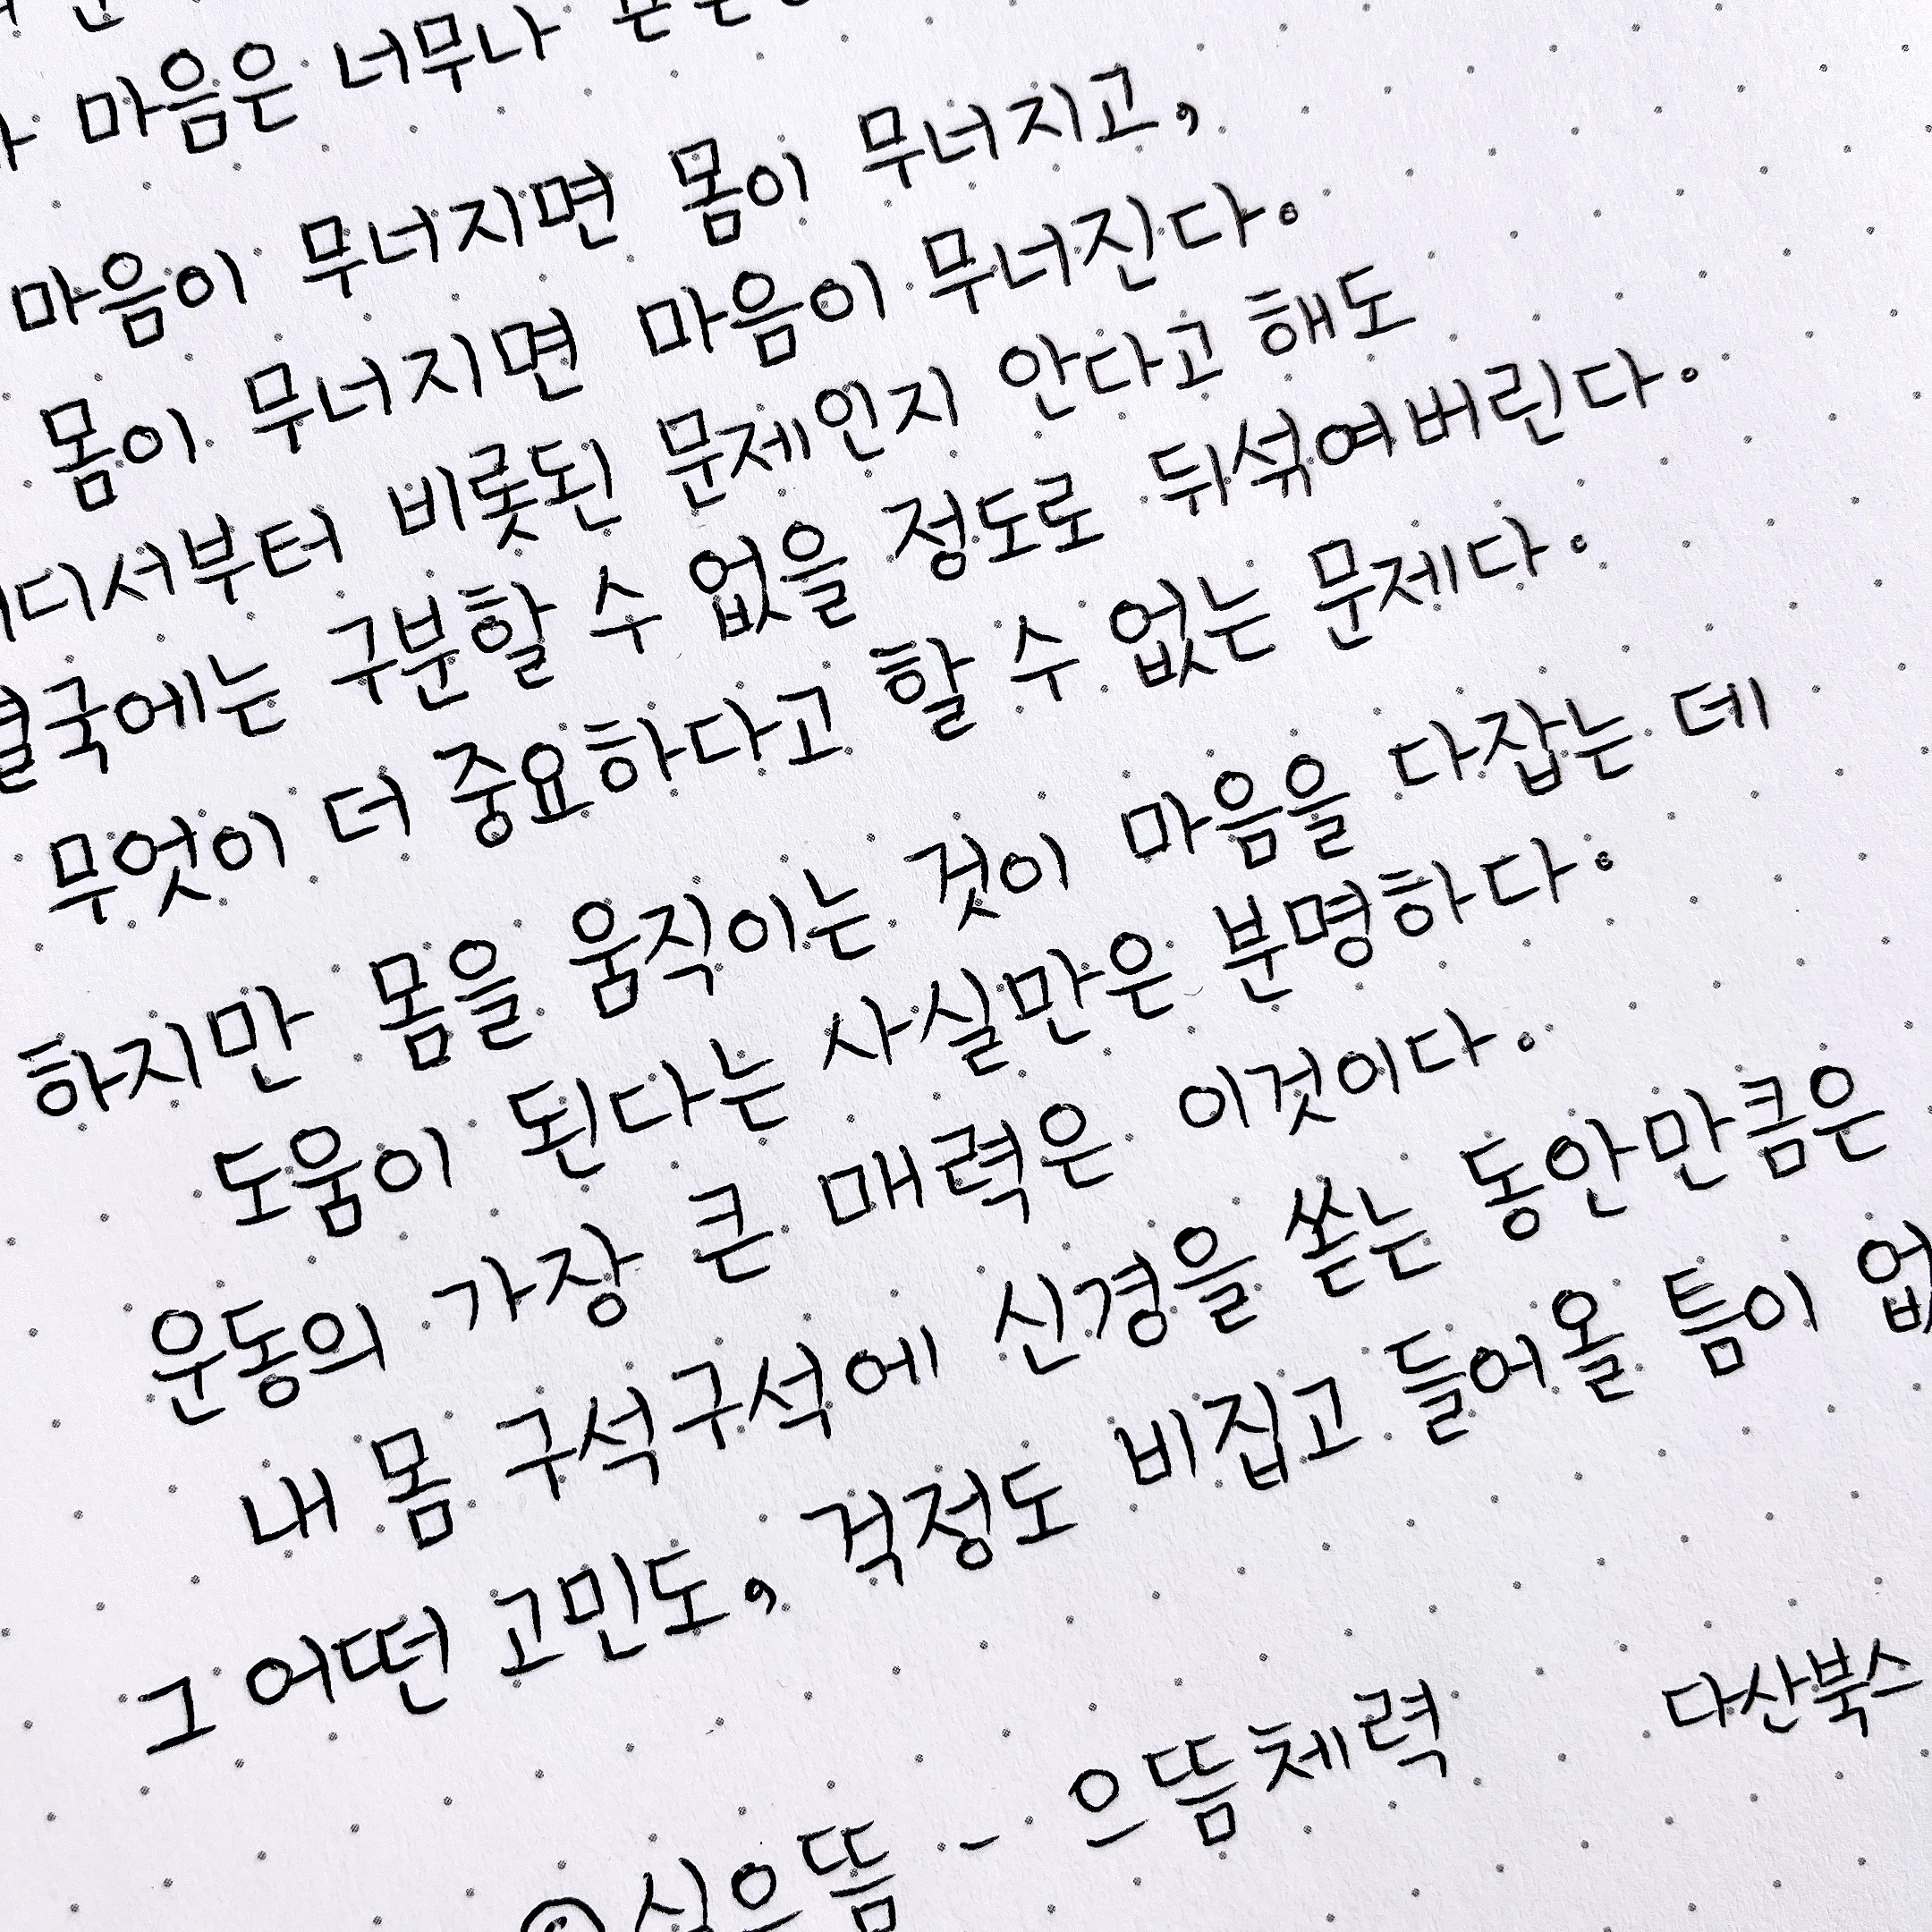 마음은 너무나
마음이 무너지면 몸이 무너지고,
몸이 무너지면 마음이 무너진다.
디서부터 비롯된 문제인지 안다고 해도
결국에는 구분할 수 없을 정도로 뒤섞여버린다.
무엇이 더 중요하다고 할 수 없는 문제다.
하지만 몸을 움직이는 것이 마음을 다잡는 데
도움이 된다는 사실만은 분명하다.
운동의 가장 큰 매력은 이것이다.
내 몸 구석구석에 신경을 쏟는 동안만큼은
그 어떤 고민도, 걱정도 비집고 들어올 틈이 없
심으뜸 - 으뜸체력 다산북스